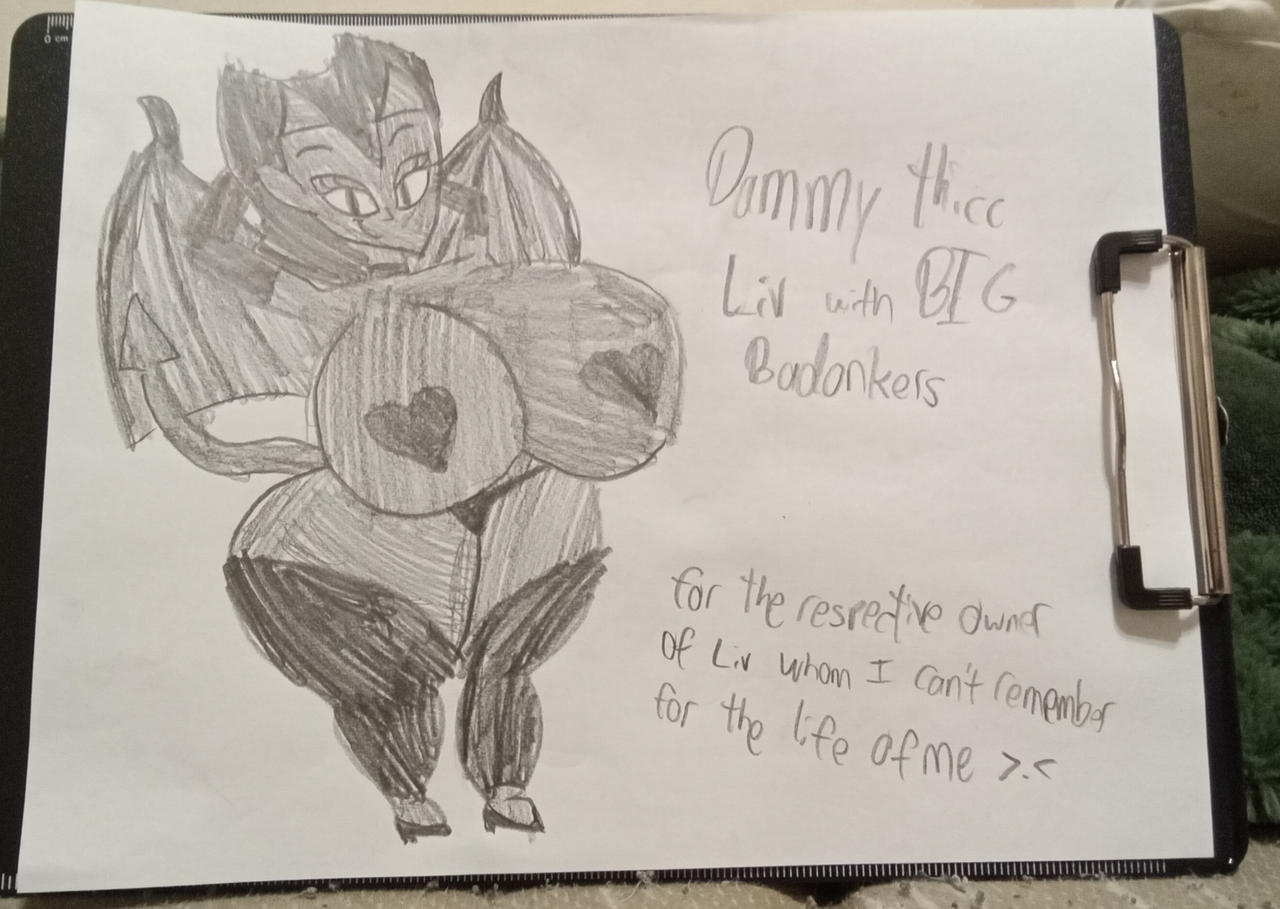 0 cm
Dammy thicc
Liv with BIG
Badonkers
for the respective owner
of Liv whom I can't remember
for the life of me >.<